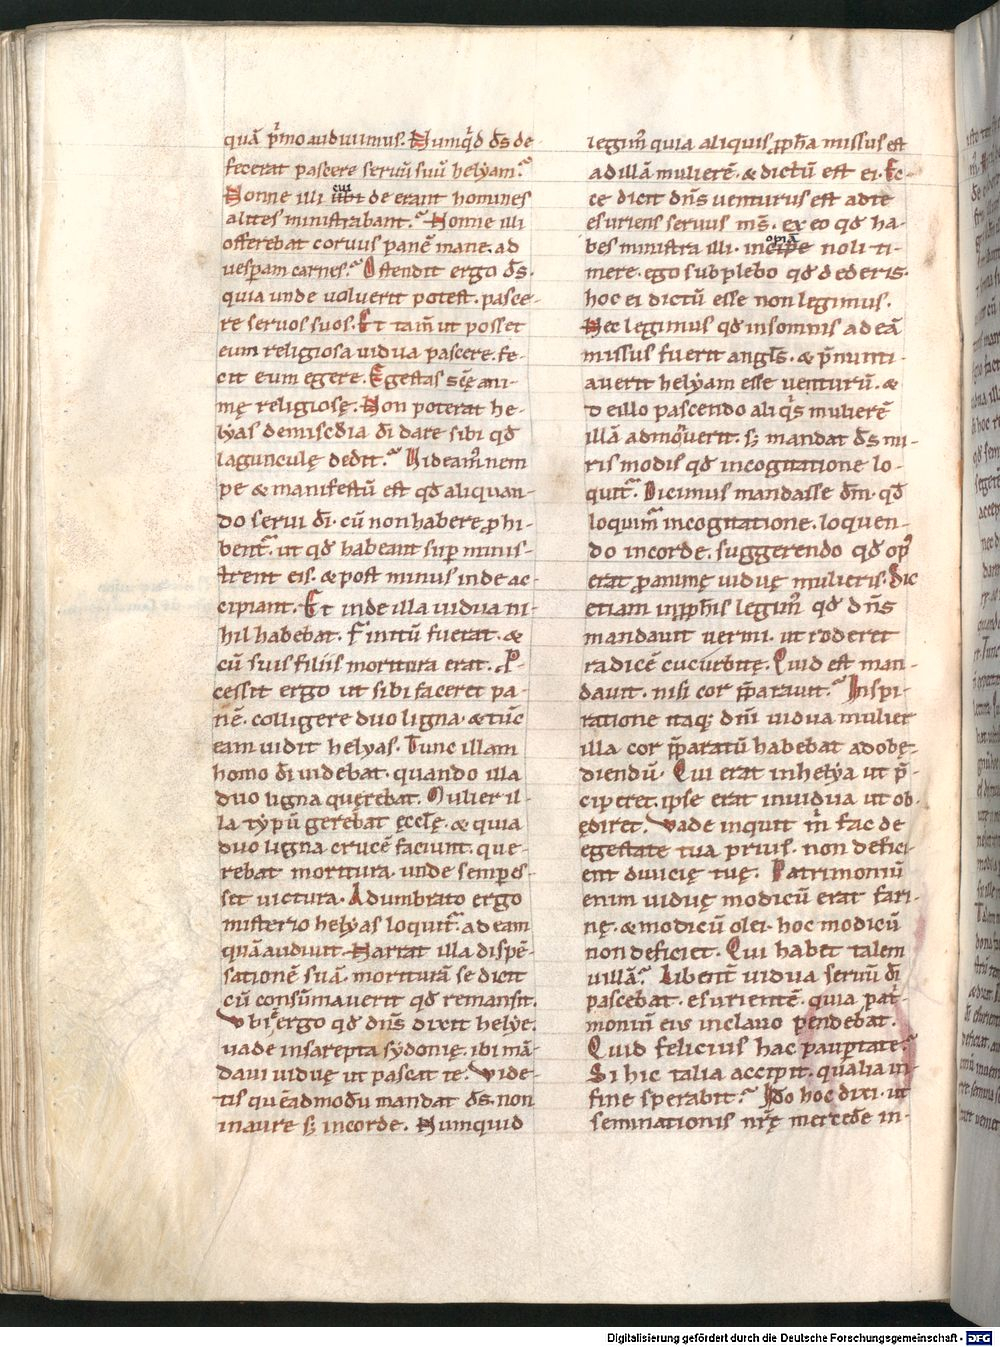 quā p'mo audiuimus. Numq'd d̄s de
fecerat pascere seruū suū helyam?
Nonne illi cui ubi de erant homines
alites ministrabant? Nonne illi
offerebat coruus panē mane. ad
uesp̱am carnes? Ostendit ergo d̄s.
quia unde uoluerit potest. pasce-
re seruos suos. Et tam̄ ut posset
eum religiosa uidua pascere. fe-
cit eum egere. Egestas sc̄ę ani-
mę religiosę. Non poterat he-
lyas de mis̄c̄dia d̄i dare sibi qđ
lagunculę dedit? Uideam' nem
pe & manifestū est qđ aliquan-
do serui d̄i. cū non habere ꝓhi-
bent'. ut qđ habeant sup̱ minis-
trent eis. & post minus inde ac-
cipiant. Et inde illa uidua ni-
hil habebat. Finitū fuerat. &
cū suis filiis moritura erat. P̱-
cessit ergo ut sibi faceret pa-
nē. colligere duo ligna. & tūc
eam uidit helyas. Tunc illam
homo d̄i uidebat. quando illa
duo ligna querebat. Mulier il-
la typū gerebat ęccl̄ę. & quia
duo ligna crucē faciunt. que-
rebat moritura. unde semp̱ es-
set uictura. Adumbrato ergo
misterio helyas loquit' ad eam
quā audiuit. Narrat illa dispē-
sationē suā. morituram se dicit
cū consūmauerit qđ remansit.
Ubi ergo qđ dn̄s dixit helye.
uade in sarepta sydonię. ibi mā-
daui uiduę ut pascat te. Vide-
tis quēadmodū mandat d̄s. non
in aure s; in corde. Numquid
legim' quia aliquis ꝓph̄a missus est
ad illā mulierē. & dictū est ei. Ec-
ce dicit dn̄s uenturus est ad te
esuriens seruus m̄s. ex eo qđ ha-
bes ministra illi. incipe opiā noli ti-
mere. ego subplebo qđ dederis.
hoc ei dictū esse non legimus.
Nec legimus qđ in somnis ad eā
missus fuerit angl̄s. & p̄nunti-
auerit helyam esse uenturū. &
de illo pascendo aliq's mulierē
illā admonuerit. s; mandat d̄s mi-
ris modis qđ in cogitatione lo-
quit'. Dicimus mandasse dm̄. qđ
loquim' in cogitatione. loquen-
do in corde. suggerendo qđ op'
erat ꝓ animę uiduę mulieris. Sic
etiam in ꝓph̄is legim' qđ dn̄s
mandauit uermi. ut roderet
radicē cucurbitę. Quid est man-
dauit. nisi cor p̄parauit? Inspi-
ratione itaq; dn̄i uidua mulier
illa cor p̄paratū habebat ad obę-
diendū. Qui erat in helya ut p̄-
ciperet. ipse erat in uidua ut ob-
ędiret. Vade inquit m̄ fac de
egestate tua prius. non defici-
ent diuicię tuę. Patrimoniū
enim uiduę modicū erat fari-
nę. & modicū olei. hoc modicū
non deficiet. Qui habet talem
uillā? Libent' uidua seruū d̄i
pascebat. esurientē. quia pat'-
moniū eius in clauo pendebat.
Quid felicius hac paup̱tate?
Si hic talia accipit. qualia in
fine sperabit? Ido hoc dixi. ut
seminationis nr̄ę mercedē in-
Digitalisierung gefördert durch die Deutsche Forschungsgemeinschaft - DFG